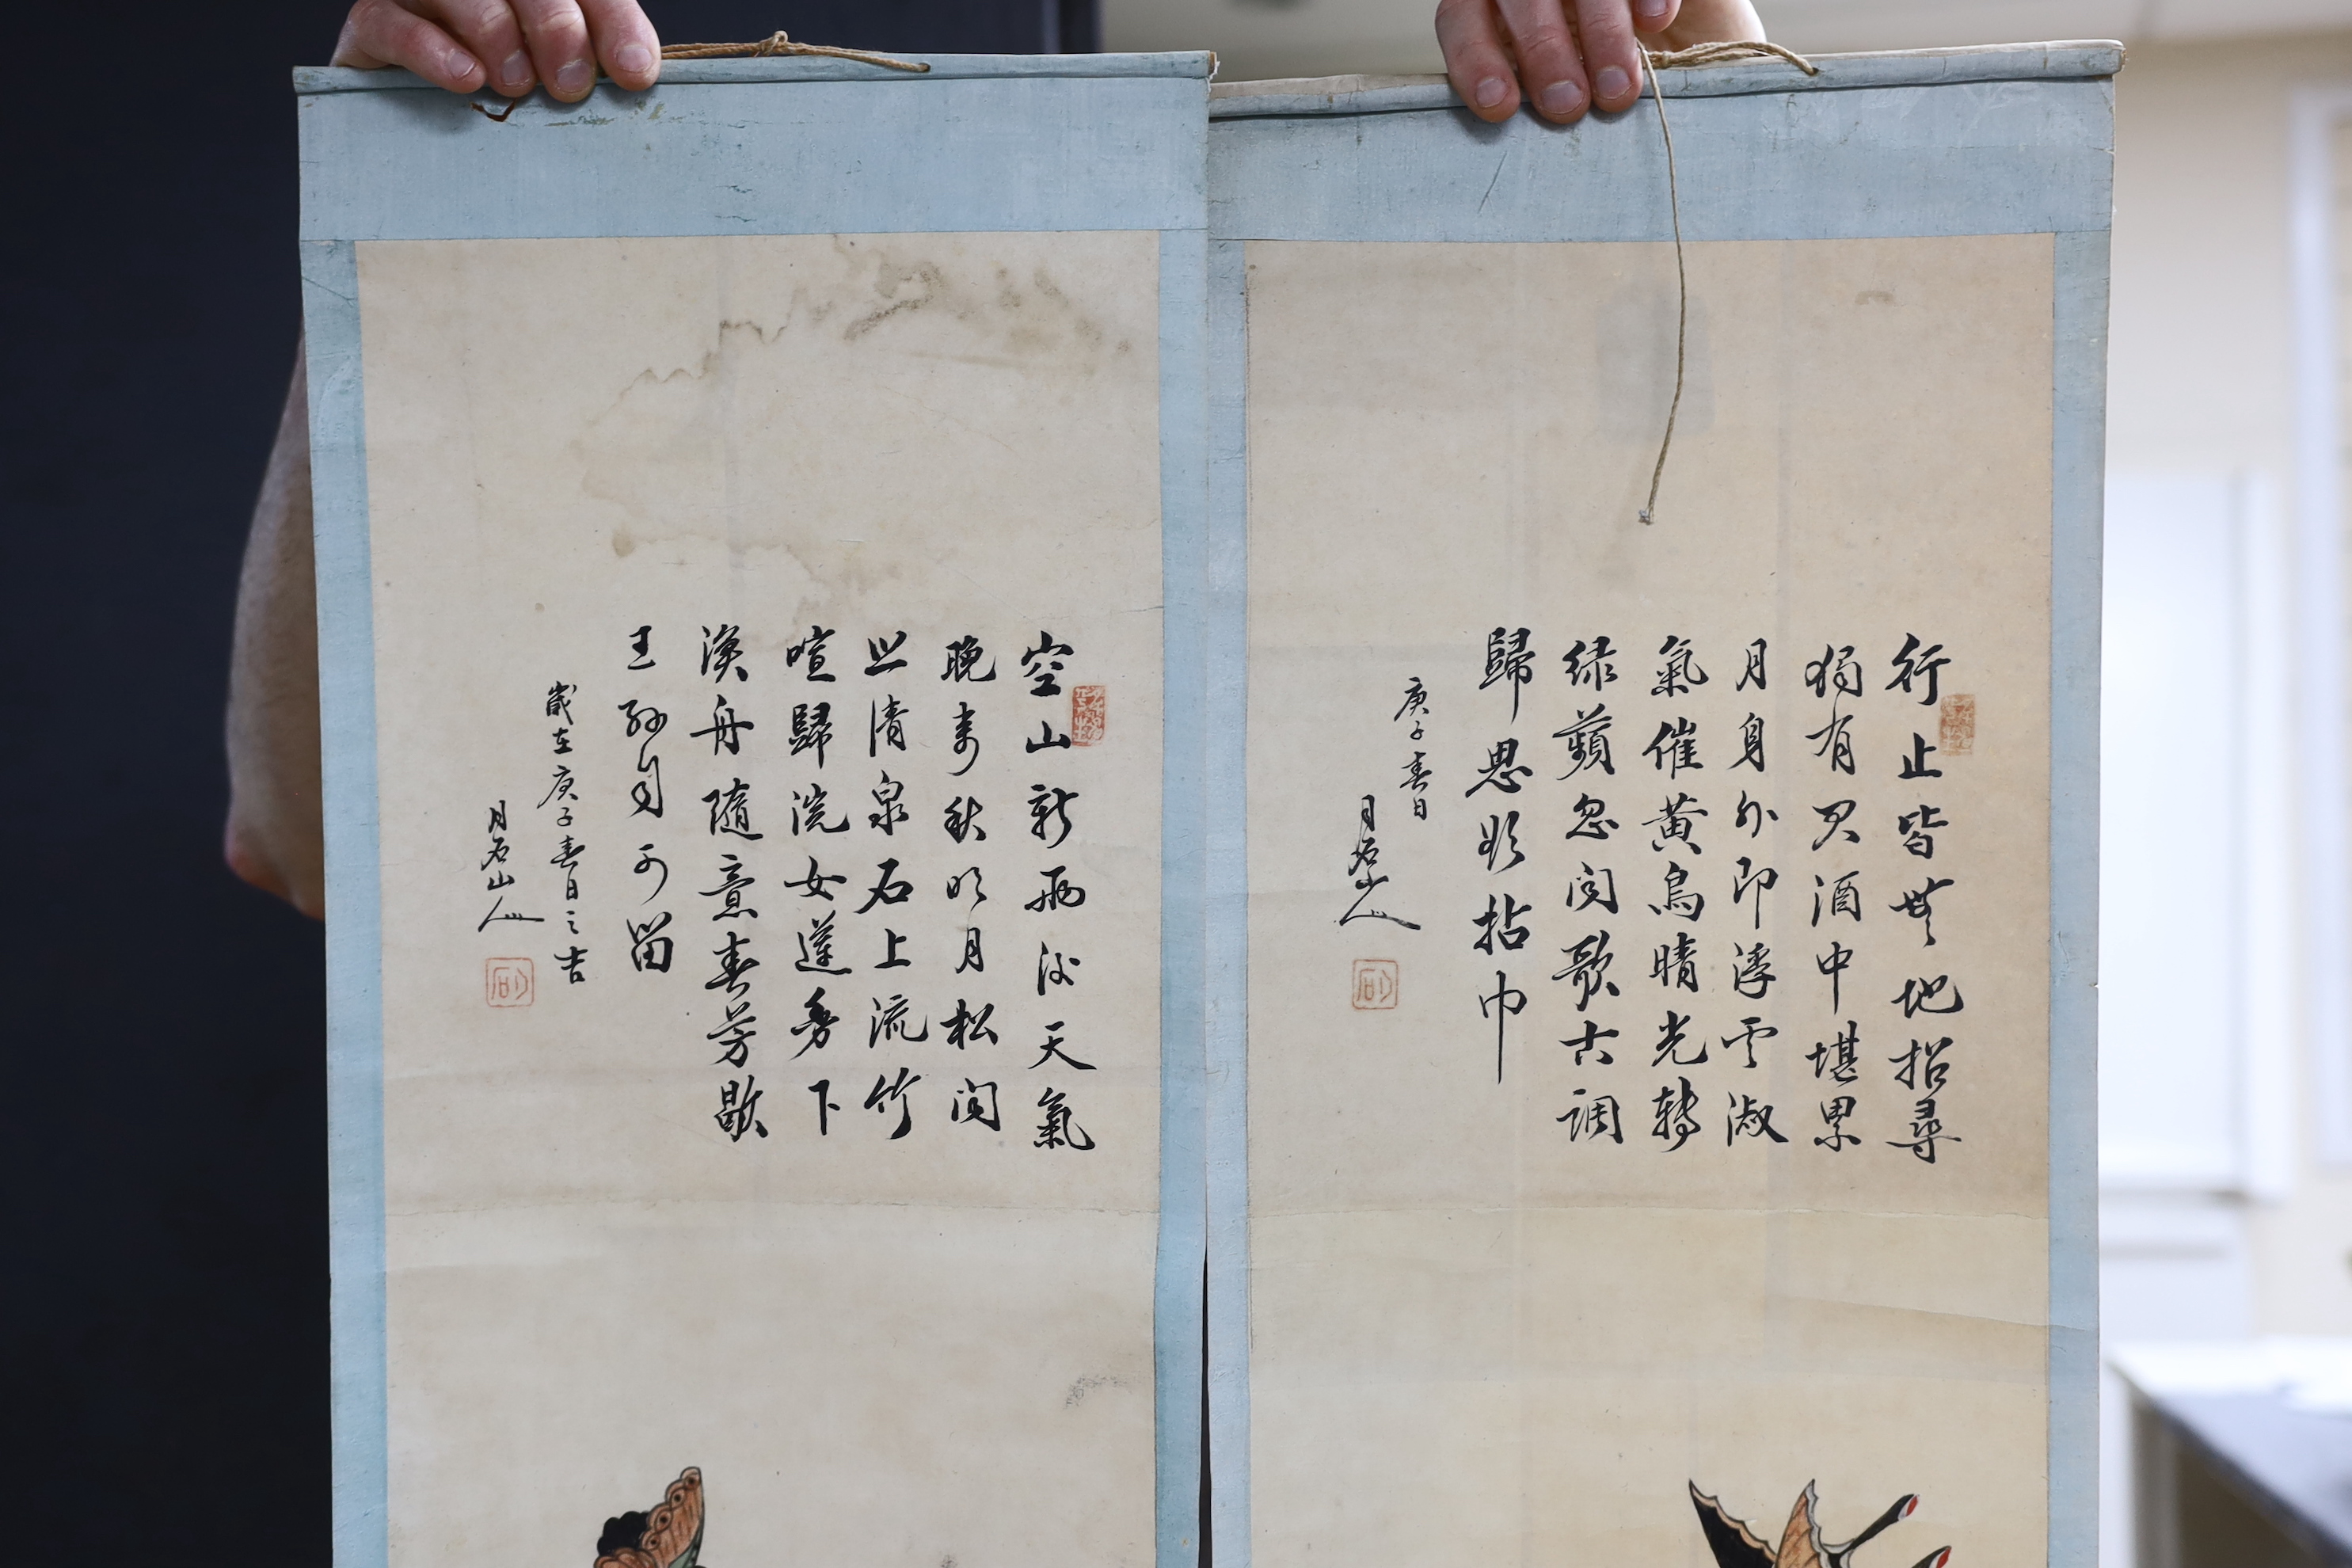 行止皆無地招尋
獨有君酒中堪累
月身外即浮雲淑
氣催黄鳥晴光轉
綠蘋忽聞歌古調
歸思欲拈巾
庚子春日
月石山人
空山新雨後天氣
晚来秋明月松間
照清泉石上流竹
喧歸浣女蓮動下
漁舟隨意春芳歇
王孫自可留
歲在庚子春日之吉
月石山人